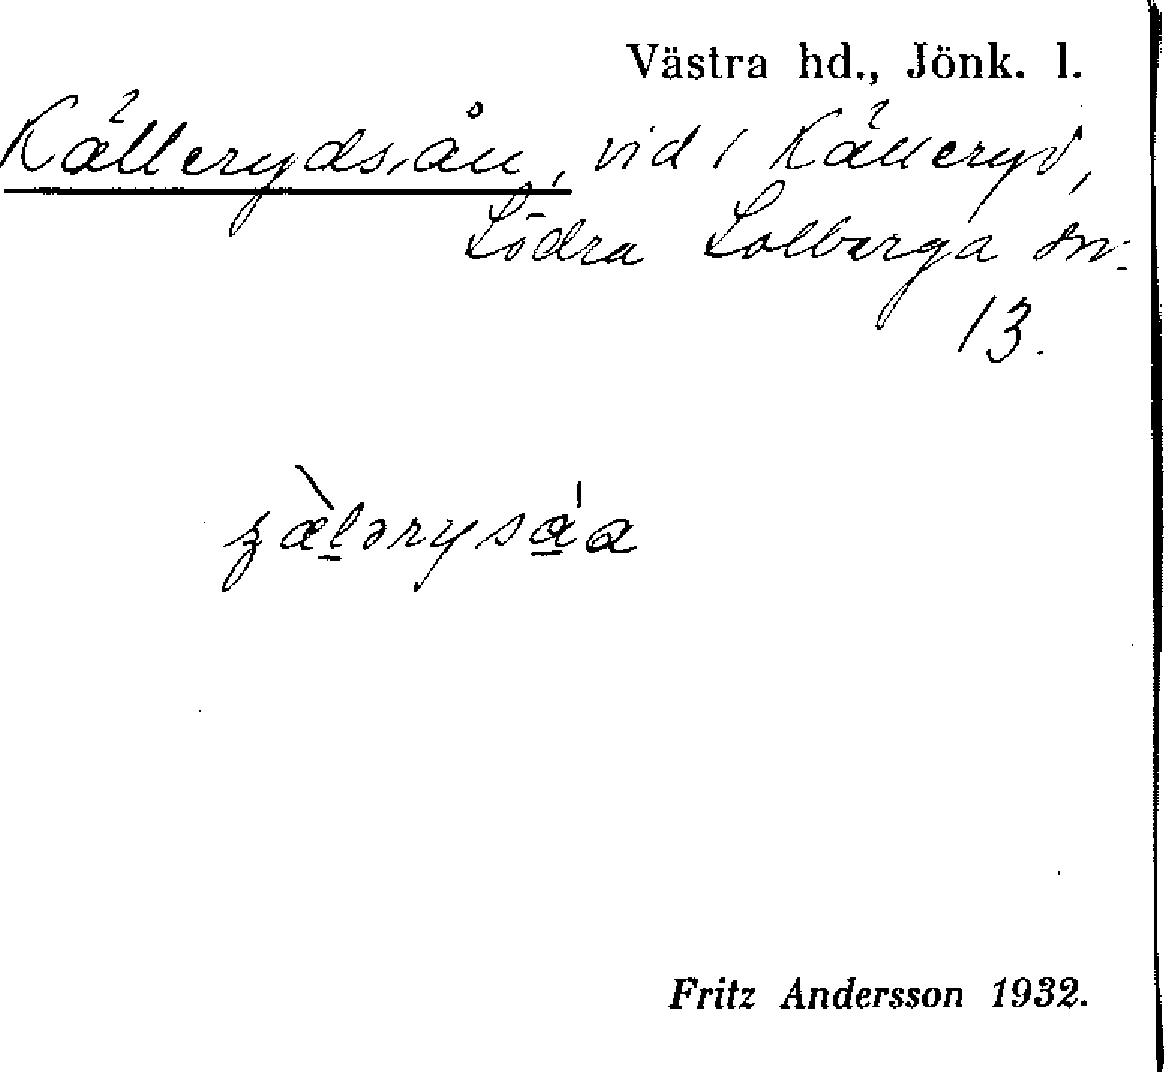 Västra hd., Jönk. l.
Källerydsån, vid i Källeryd,
Södra Solberga sn.
13.
Fritz Andersson 1932.